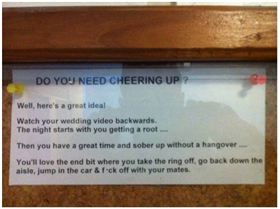 DO YOU NEED CHEERING UP ?
Well, here's a great idea!
Watch your wedding video backwards.
The night starts with you getting a root ....
Then you have a great time and sober up without a hangover ....
You'll love the end bit where you take the ring off, go back down the
aisle, jump in the car & f*ck off with your mates.